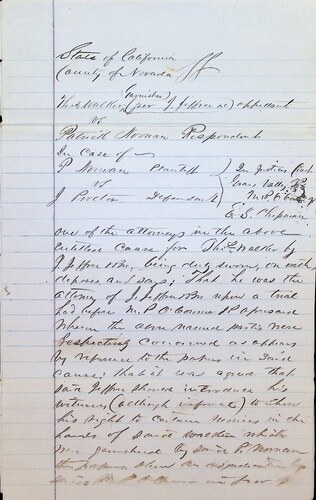 State of California
County of Nevada } SS
Garnishee
Thos Walker (per J. Jeffree &c) appellant
vs
Patrick Noonan Respondent
In Case of
P Noonan Plaintiff
vs
J Defendant
In Justices Court
Grass Valley
M. P. O'Connor
E. S. Chipman
one of the attorneys in the above
entitled cause for Thos Walker by
J Jeffree &c, being duly sworn, on oath
deposes and says; That he was the
attorney of J. Jeffree upon a trial
had before M. P. O'Connor J P aforesaid
wherein the above named parties were
respectively concerned as appears
by reference to the papers in said
cause; that it was agreed that
said Jeffree should introduce his
witnesses (although informal) to show
his right to certain monies in the
hands of said which
were garnisheed by said P. Noonan
the